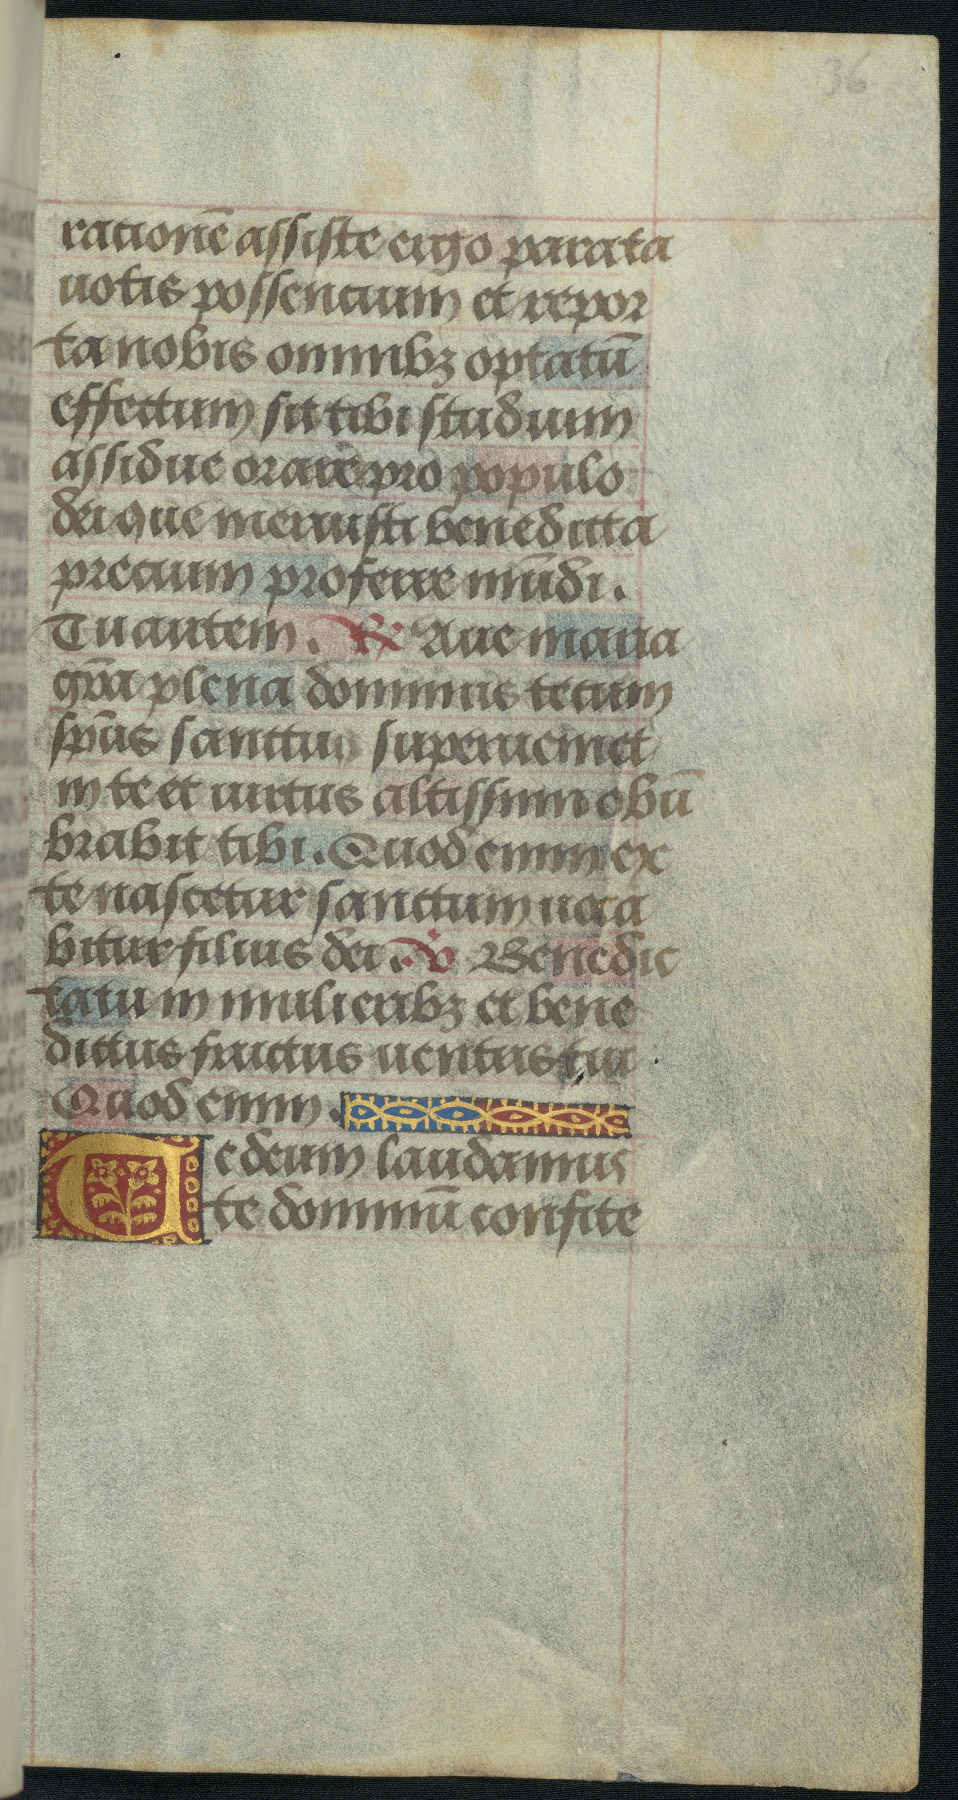 36
rationē assiste ergo parata
uotis possentium et repor
ta nobis omnibꝫ optatū
effectum sit tibi studium
assidue orare pro populo
dei que meruisti benedicta
precium proferre mūdi.
Tu autem. ℟ Aue maria
gr̄a plena dominus tecum
sp̄us sanctus superueniet
in te et uirtus altissimi obū
brabit tibi. Quod enim ex
te nascetur sanctum uoca
bitur filius dei. ℣ Benedic
ta tu in mulieribꝫ et bene
dictus fructus uentris tui
Quod enim.
Te deum laudamus
te dominū confite